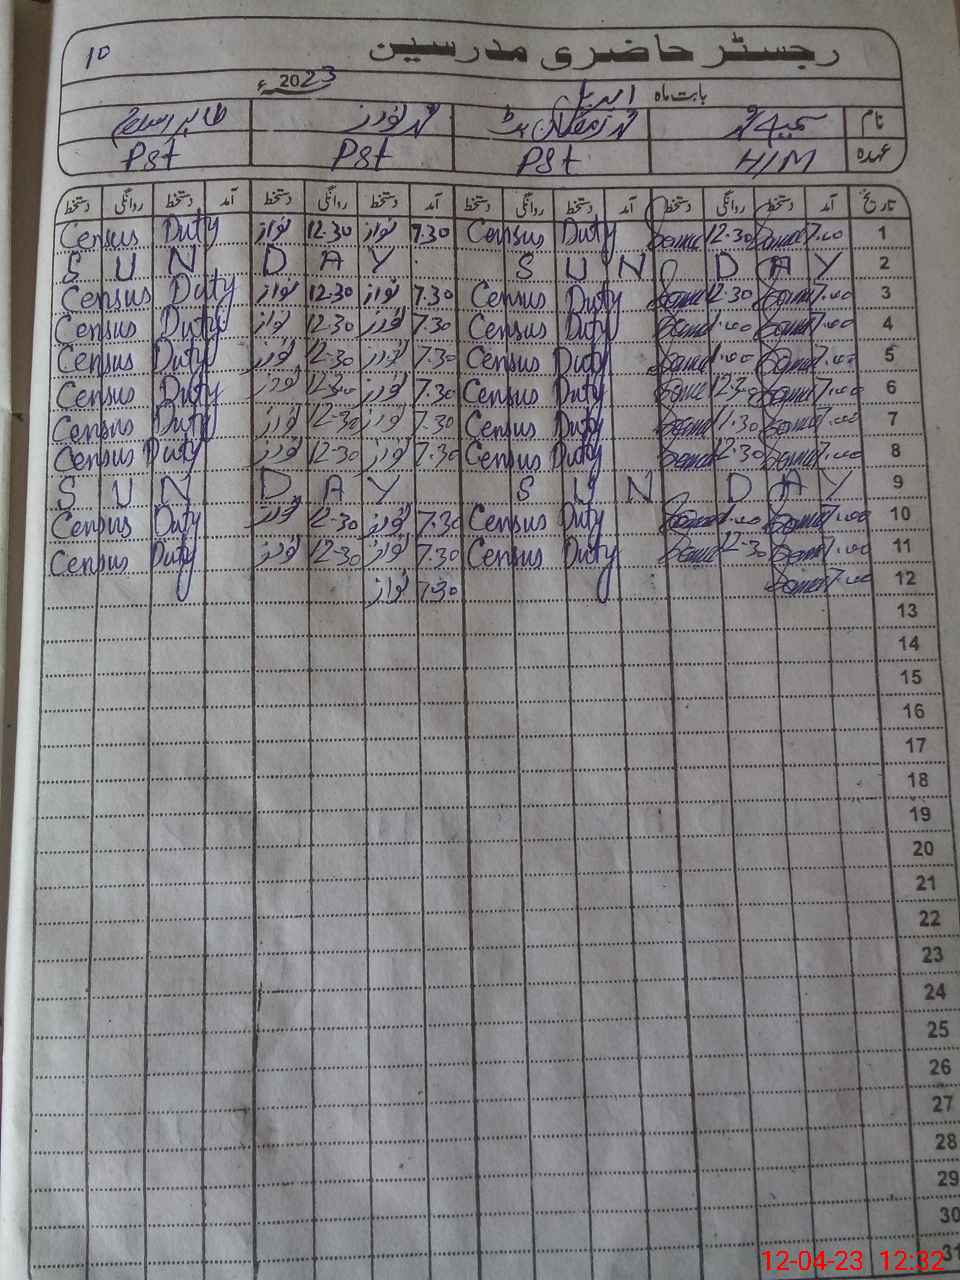 10
رجسٹر حاضری مدرسین
بابت ماہ اپریل 2023ء
نام
عہدہ H/M PSt PSt PSt
تاریخ آمد دستخط روانگی دستخط آمد دستخط روانگی دستخط آمد دستخط روانگی دستخط آمد دستخط روانگی دستخط
1 7.00 12.30 Census Duty 7.30 نواز 12.30 نواز Census Duty
2 SUNDAY SUNDAY
3 7.00 12.30 Census Duty 7.30 نواز 12.30 نواز Census Duty
4 7.00 1.00 Census Duty 7.30 نواز 12.30 نواز Census Duty
5 7.00 1.00 Census Duty 7.30 نواز 12.30 نواز Census Duty
6 7.00 12.30 Census Duty 7.30 نواز 12.30 نواز Census Duty
7 7.00 11.30 Census Duty 7.30 نواز 12.30 نواز Census Duty
8 7.00 12.30 Census Duty 7.30 نواز 12.30 نواز Census Duty
9 SUNDAY SUNDAY
10 7.00 1.00 Census Duty 7.30 نواز 12.30 نواز Census Duty
11 7.00 12.30 Census Duty 7.30 نواز 12.30 نواز Census Duty
12 7.00 7.30 نواز
13
14
15
16
17
18
19
20
21
22
23
24
25
26
27
28
29
30
31
12-04-23 12:32